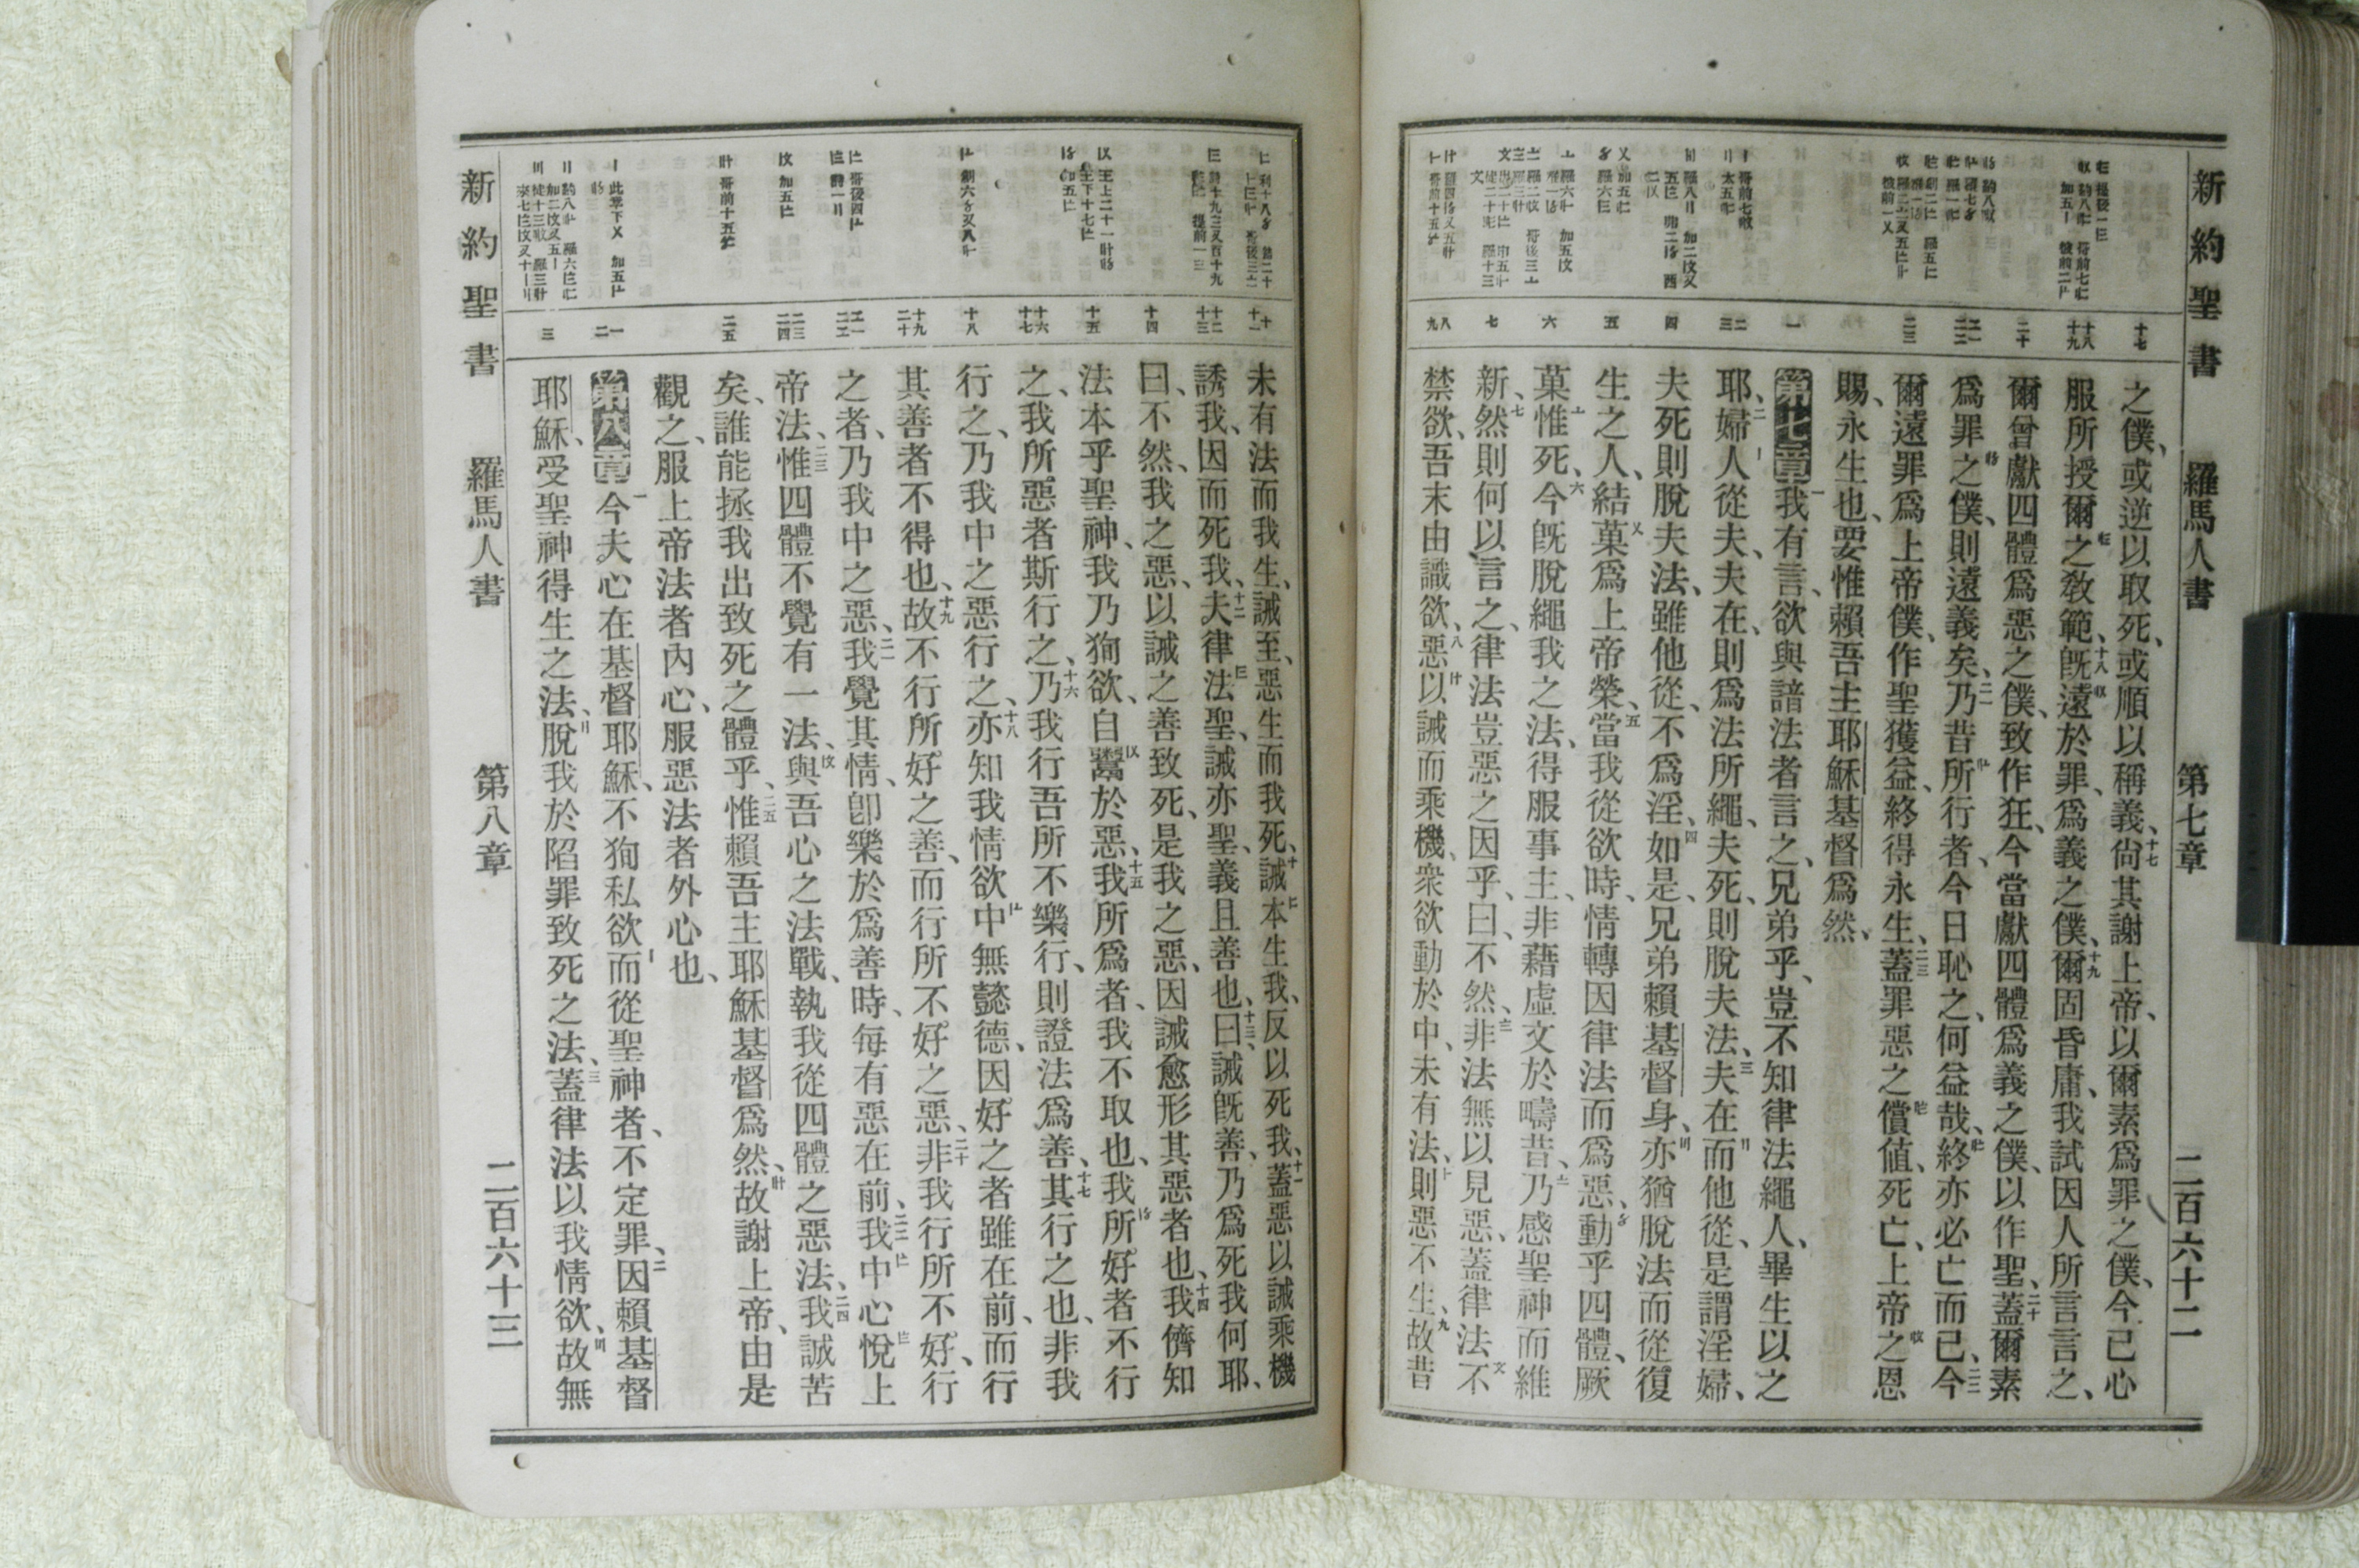 新約聖書 羅馬人書 第七章 二百六十二
十七
十八
十九
二十
二一
二二
二三
一
二
三
四
五
六
七
八
九
之僕、或逆以取死、或順以稱義、十七尙其謝上帝、以爾素爲罪之僕、今已心
服所授爾之教範、十八旣遠於罪、爲義之僕、十九爾固昏庸、我試因人所言言之、
爾曾獻四體爲惡之僕、致作狂、今當獻四體爲義之僕、以作聖、二十蓋爾素
爲罪之僕、則遠義矣、二一乃昔所行者、今日恥之、何益哉、終亦必亡而已、二二今
爾遠罪爲上帝僕、作聖獲益、終得永生、二三蓋罪惡之償値、死亡、上帝之恩
賜、永生也、要惟賴吾主耶穌基督爲然、
第七章一我有言、欲與諳法者言之、兄弟乎、豈不知律法繩人、畢生以之
耶、二婦人從夫、夫在、則爲法所繩、夫死、則脫夫法、三夫在而他從、是謂淫婦、
夫死則脫夫法、雖他從、不爲淫、四如是、兄弟賴基督身、亦猶脫法而從復
生之人、結菓爲上帝榮、五當我從欲時、情轉因律法而爲惡、動乎四體、厥
菓惟死、六今旣脫繩我之法、得服事主、非藉虛文於疇昔、乃感聖神而維
新、七然則何以言之、律法豈惡之因乎、曰、不然、非法無以見惡、蓋律法不
禁欲、吾末由識欲、八惡以誡而乘機、衆欲動於中、未有法、則惡不生、九故昔
新約聖書 羅馬人書 第八章 二百六十三
十
十一
十二
十三
十四
十五
十六
十七
十八
十九
二十
二一
二二
二三
二四
二五
一
二
三
未有法而我生、誡至、惡生而我死、十誡本生我、反以死我、十一蓋惡以誡乘機
誘我、因而死我、十二夫律法聖、誡亦聖、義且善也、十三曰、誡旣善、乃爲死我何耶、
曰、不然、我之惡、以誡之善致死、是我之惡、因誡愈形其惡者也、十四我儕知
法本乎聖神、我乃狥欲、自鬻於惡、十五我所爲者、我不取也、我所好者不行
之、我所惡者斯行之、十六乃我行吾所不樂行、則證法爲善、十七其行之也、非我
行之、乃我中之惡行之、十八亦知我情欲中無懿德、因好之者雖在前、而行
其善者不得也、十九故不行所好之善、而行所不好之惡、二十非我行所不好、行
之者、乃我中之惡、二一我覺其情、卽樂於爲善時、每有惡在前、二二我中心悅上
帝法、二三惟四體不覺有一法、與吾心之法戰、執我從四體之惡法、二四我誠苦
矣、誰能拯我出致死之體乎、二五惟賴吾主耶穌基督爲然、故謝上帝、由是
觀之、服上帝法者內心、服惡法者外心也、
第八章一今夫心在基督耶穌、不狥私欲而從聖神者、不定罪、二因賴基督
耶穌、受聖神得生之法、脫我於陷罪致死之法、三蓋律法以我情欲、故無